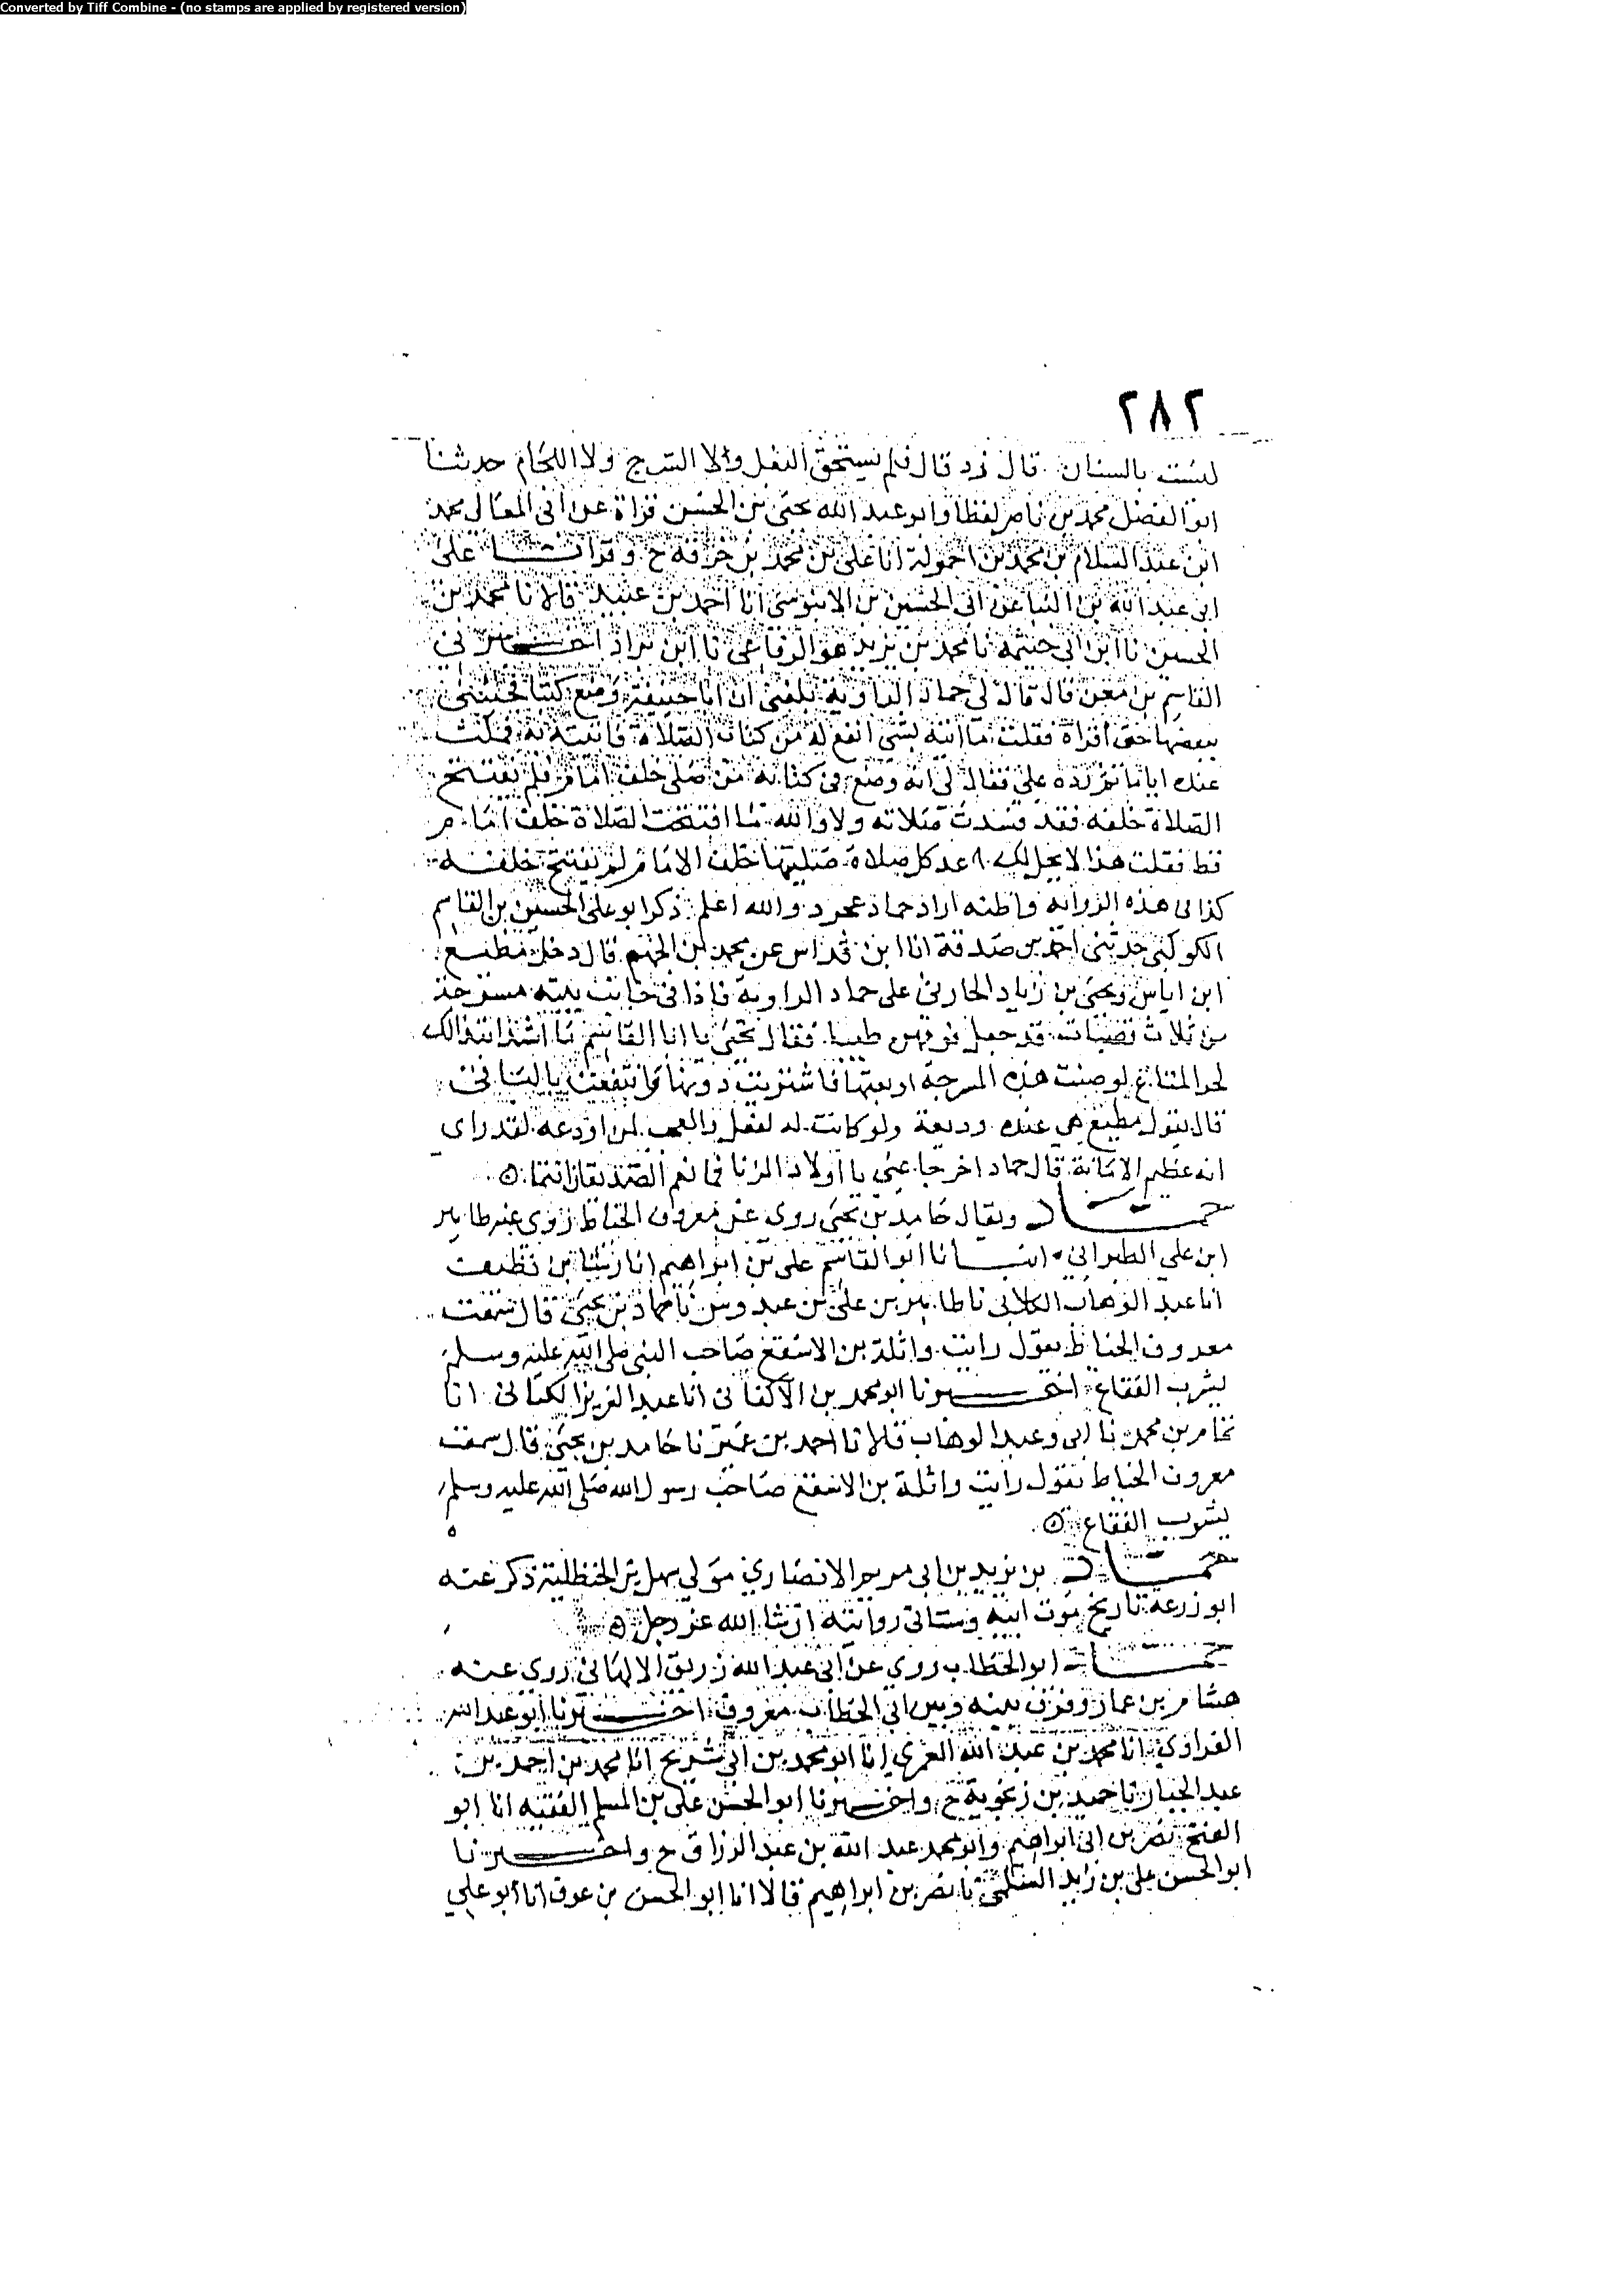 Converted by Tiff Combine - (no stamps are applied by registered version)
٢٨٢
ليست بالسنان قال زد قال فلم يستحق البغل ولا السرج ولا اللجام حدثنا
ابو الفضل محمد بن ناصر لفظا وابو عبد الله يحيى بن الحسن قراة عن ابي المعالي محمد
ابن عبد السلام بن محمد بن احمولة انا علي بن محمد بن خزفه ح وقرانا على
ابي عبد الله بن البنا عن ابي الحسين بن الابنوسي انا احمد بن عبيد قالا نا محمد بن
الحسين نا ابن ابي خيثمة نا محمد بن يزيد هو الرفاعي نا ابن براد اخبرني
القاسم بن معن قال قال لي حماد الراوية بلغني ان ابا حنيفة وضع كتبا فجئني
ببعضها حتى اقراه فقلت ما اتيه بشي انفع له من كتاب الصلاة فاتيته به فمكث
عنده اياما ثم رده علي فقال لي انه وضع في كتابه من صلى خلف امام فلم يفتتح
الصلاة خلفه فقد فسدت صلاته ولا والله ما افتتحت الصلاة خلف امام
قط فقلت هذا لا يحل لك اعد كل صلاة صليتها خلف الامام لم تفتتح خلفه
كذا في هذه الرواية واظنه اراد حماد عجرد والله اعلم ذكر ابو علي الحسين بن القاسم
الكوكبي حدثني احمد بن صدقة انا ابن قداس عن محمد بن الجهم قال دخل مطيع
ابن اياس ويحيى بن زياد الحارثي على حماد الراوية فاذا في جانب بيته مسرجة
من ثلاث قصبات قد جعل فوقهن طينا فقال يحيى يا ابا القاسم ما اشد ابتذالك
لحر المتاع لو صنت هذه المسرجة وبعتها فاشتريت دونها وانتفعت بالباقي
قال يقول مطيع هي عنده وديعة ولو كانت له لفعل والعجب لمن اودعه لقد راى
انه عظيم الامانة قال حماد اخرجا عني يا اولاد الزنا فما نعم الصديقان انتما ه
حماد ويقال حامد بن يحيى روى عن معروف الخياط روى عنه طاهر
ابن علي الطبراني انبانا ابو القاسم علي بن ابراهيم انا رشا بن نظيف
انا عبد الوهاب الكلابي نا طاهر بن علي بن عبدوس نا حماد بن يحيى قال سمعت
معروف الخياط يقول رايت واثلة بن الاسقع صاحب النبي صلى الله عليه وسلم
يشرب الفقاع اخبرنا ابو محمد بن الاكفاني انا عبد العزيز الكتاني انا
تمام بن محمد نا ابي وعبد الوهاب قالا نا احمد بن عمير نا حامد بن يحيى قال سمعت
معروف الخياط يقول رايت واثلة بن الاسقع صاحب رسول الله صلى الله عليه وسلم
يشرب الفقاع ه
حماد بن يزيد بن ابي مريم الانصاري مولى سهل بن الحنظلية ذكر عنه
ابو زرعة تاريخ موت ابيه وستاتي روايته ان شا الله عز وجل ه
حماد ابو الخطاب روى عن ابي عبد الله زريق الالهاني روى عنه
هشام بن عمار وفرق بينه وبين ابي الخطاب معروف اخبرنا ابو عبد الله
الفراوي انا محمد بن عبد الله العمري انا ابو محمد بن ابي شريح انا محمد بن احمد بن
عبد الجبار نا حميد بن زنجوية ح واخبرنا ابو الحسن علي بن المسلم الفقيه انا ابو
الفتح نصر بن ابي ابراهيم وابو محمد عبد الله بن عبد الرزاق ح واخبرنا
ابو الحسن علي بن زيد السلمي نا نصر بن ابراهيم قالا انا ابو الحسن بن عوف انا ابو علي